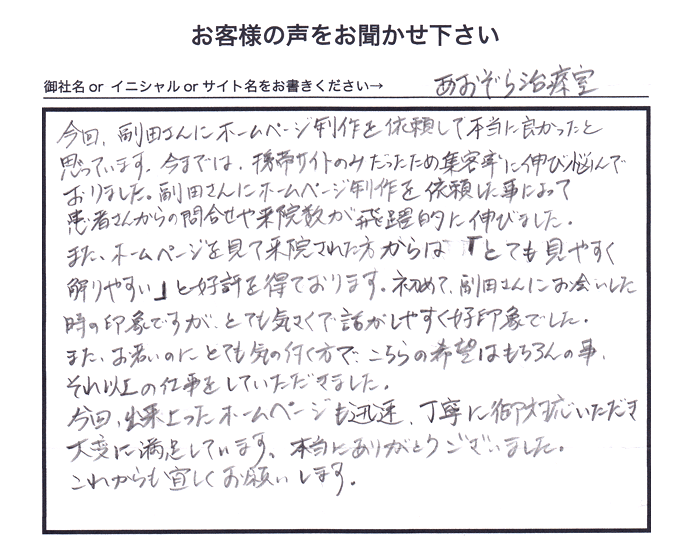 お客様の声をお聞かせ下さい
御社名 or イニシャル or サイト名をお書きください→ あおぞら治療室
今回、副田さんにホームページ制作を依頼して本当に良かったと
思っています。今までは、携帯サイトのみだったため集客率に伸び悩んで
おりました。副田さんにホームページ制作を依頼した事によって
患者さんからの問合せや来院数が飛躍的に伸びました。
また、ホームページを見て来院された方からは「とても見やすく
解りやすい」と好評を得ております。初めて、副田さんにお会いした
時の印象ですが、とても気さくで話がしやすく好印象でした。
また、お若いのにとても気の付く方で、こちらの希望はもちろんの事、
それ以上の仕事をしていただきました。
今回、出来上ったホームページも迅速、丁寧に御対応いただき
大変に満足しています。本当にありがとうございました。
これからも宜しくお願いします。